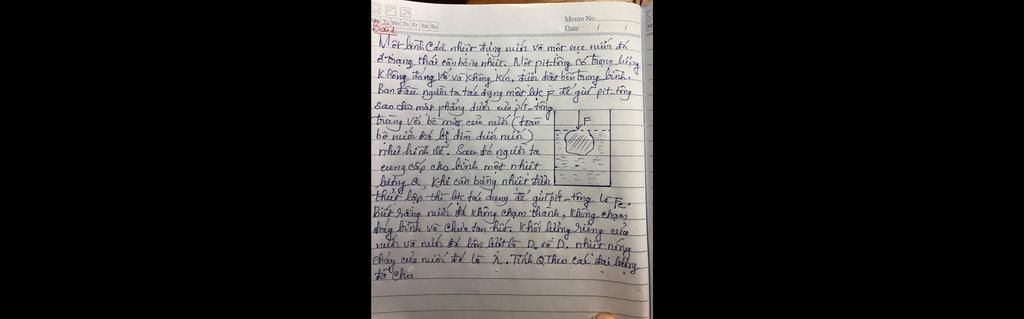 Tu We Th Fr Sa Su
Memo No.
Date / /
Bài 1
Một bình cách nhiệt đựng nước và một cục nước đá
ở trạng thái cân bằng nhiệt. Một pit-tông có trọng lượng
không đáng kể và không kín, được đặt bên trong bình.
Ban đầu người ta tác dụng một lực F để giữ pit-tông
sao cho mặt phẳng dưới của pít-tông
trùng với bề mặt của nước (toàn
bộ nước đá bị dìm dưới nước)
như hình vẽ. Sau đó người ta
F
cung cấp cho bình một nhiệt
lượng Q, khi cân bằng nhiệt được
thiết lập thì lực tác dụng để giữ pít-tông là
Biết rằng nước đá không chạm thành, không chạm
đáy bình và chưa tan hết. Khối lượng riêng của
nước và nước đá lần lượt là D. và D, nhiệt nóng
chảy của nước đá là λ. Tính Q theo các đại lượng
đã cho